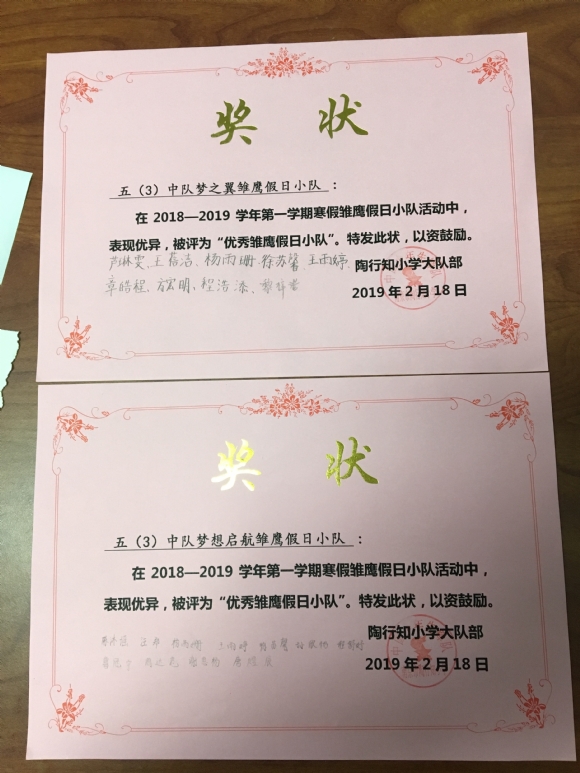 奖 状
五（3）中队梦之翼雏鹰假日小队：
在 2018—2019 学年第一学期寒假雏鹰假日小队活动中，
表现优异，被评为“优秀雏鹰假日小队”。特发此状，以资鼓励。
王嘉洁、杨雨珊、徐苏馨、王雨婷、
陶行知小学大队部
章皓程、方宏明、程浩添、
2019 年 2 月 18 日
奖 状
五（3）中队梦想启航雏鹰假日小队：
在 2018—2019 学年第一学期寒假雏鹰假日小队活动中，
表现优异，被评为“优秀雏鹰假日小队”。特发此状，以资鼓励。
陶行知小学大队部
2019 年 2 月 18 日